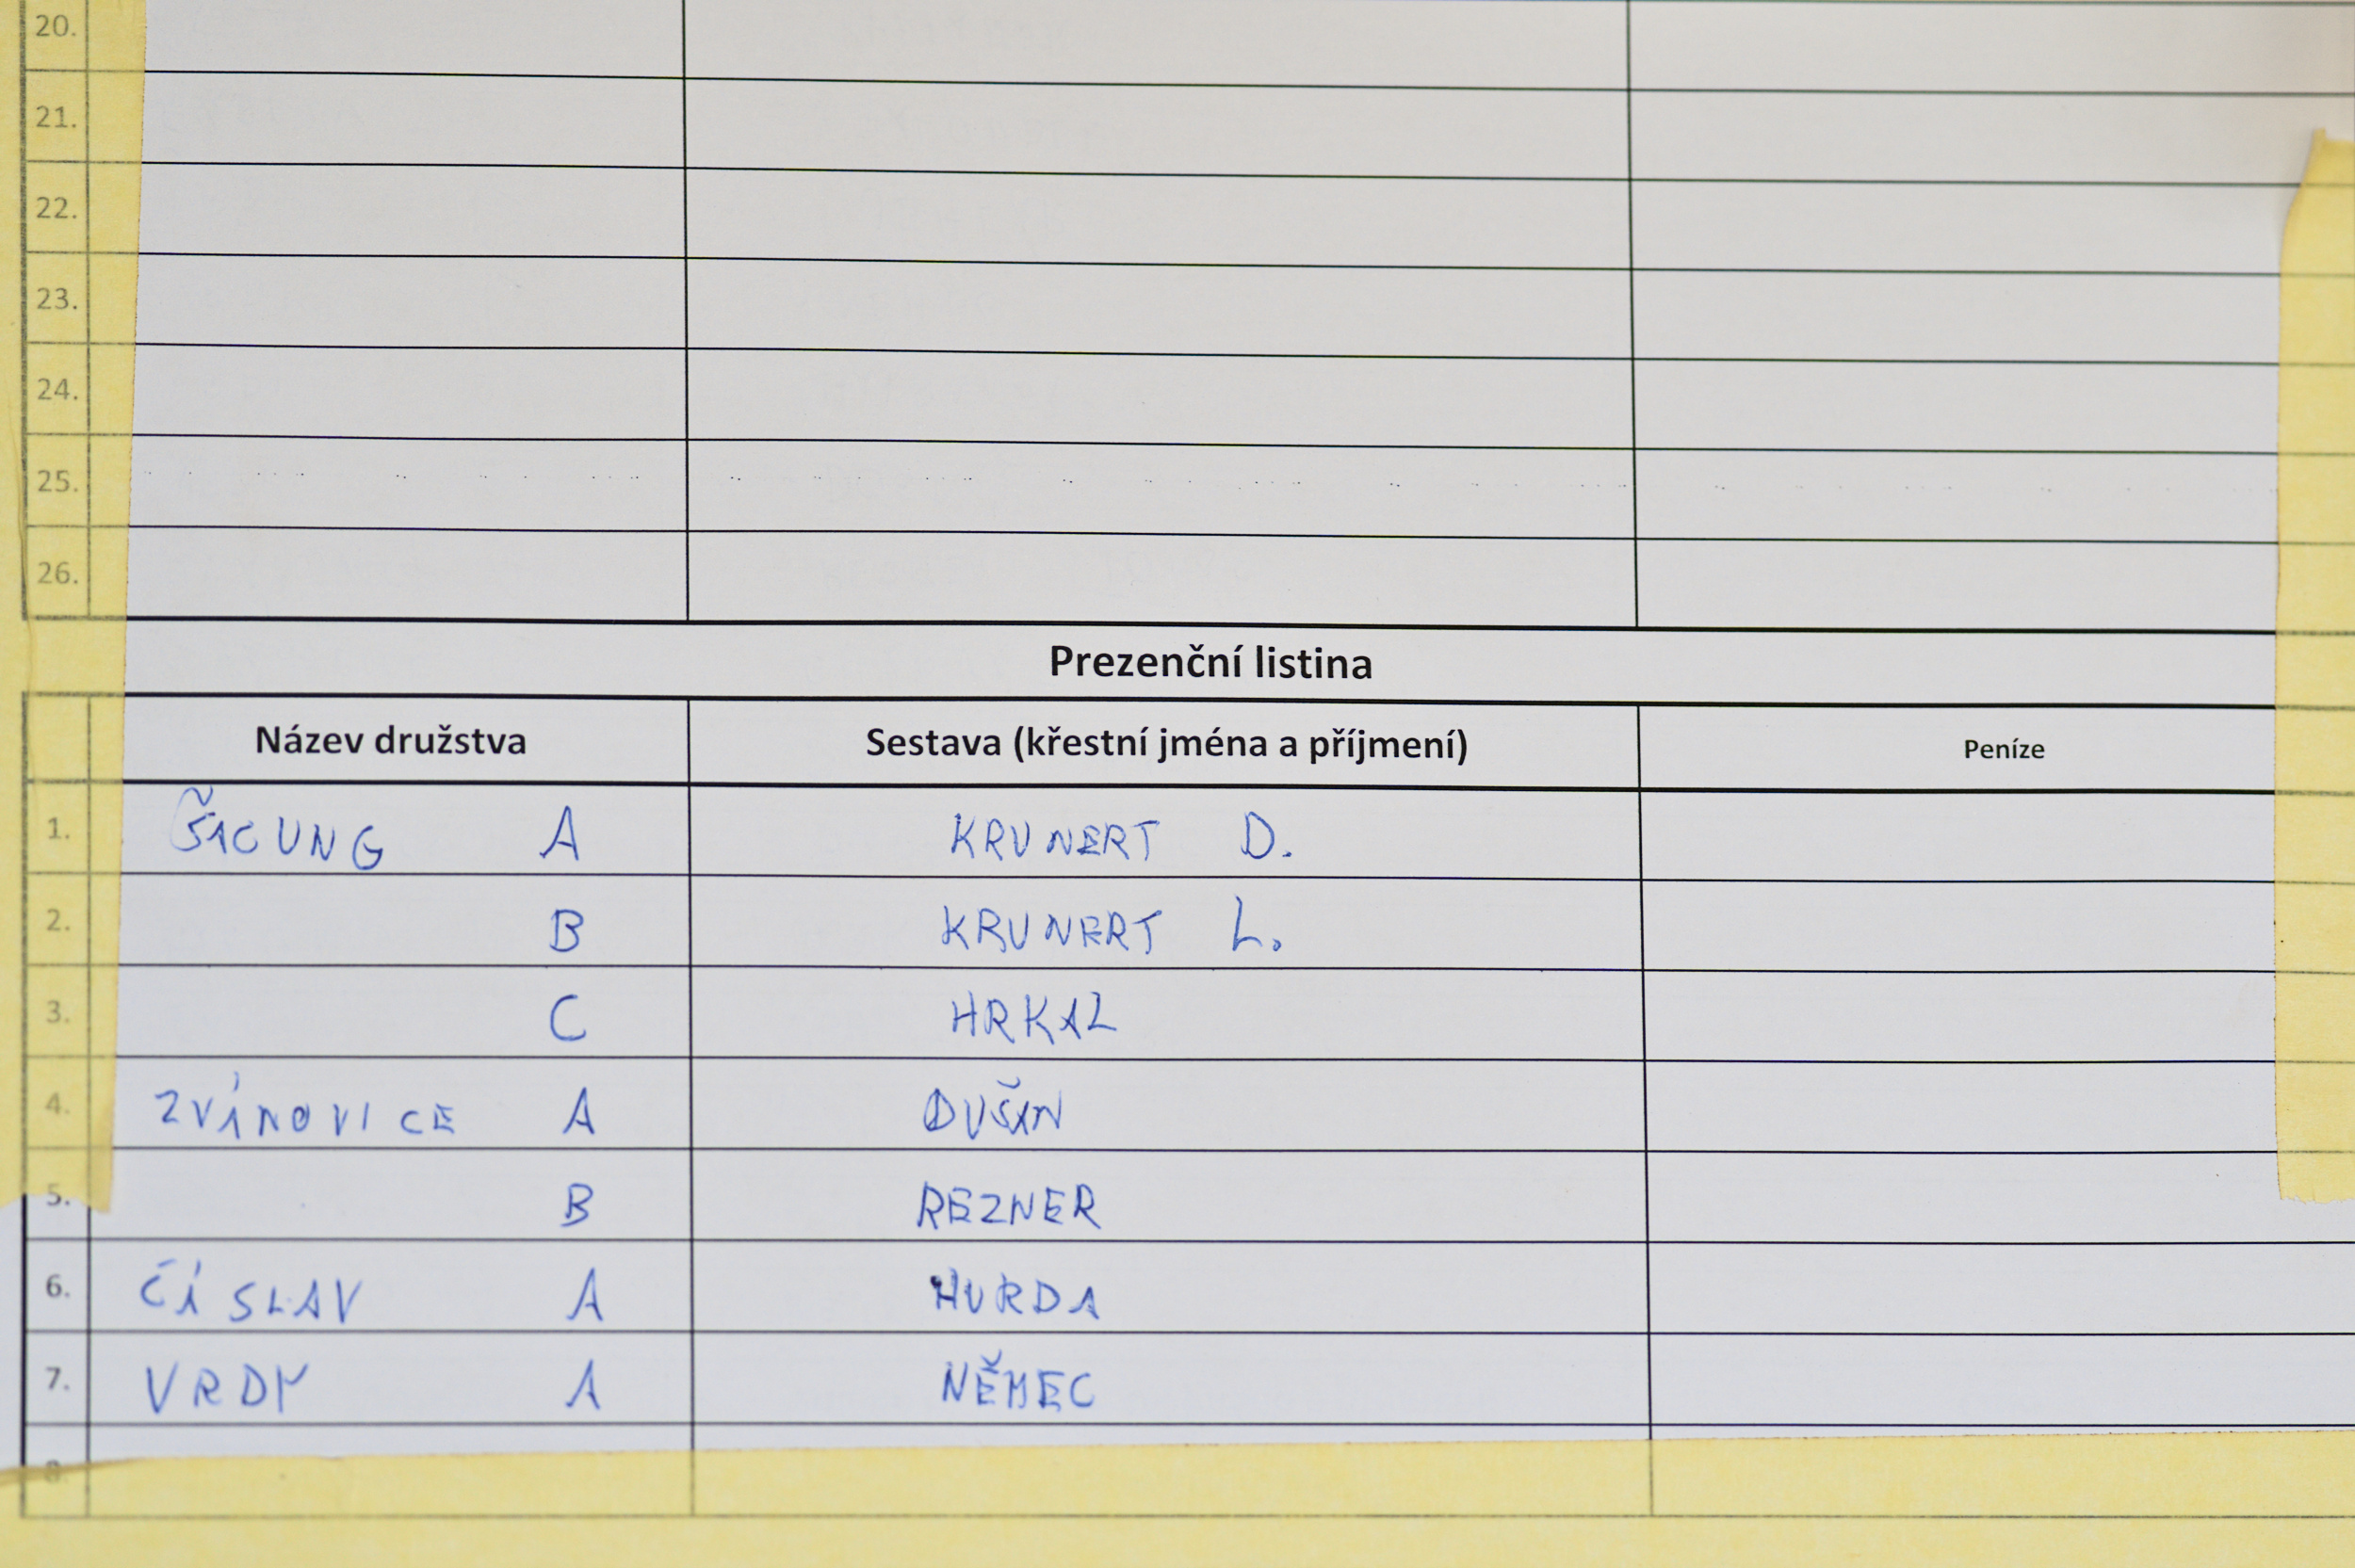 20.
21.
22.
23.
24.
25.
26.
Prezenční listina
Název družstva Sestava (křestní jména a příjmení) Peníze
1. A KRUNERT D.
2. B KRUNERT L.
3. C HRKAL
4. ZVÍNOVICE A DUŠAN
5. B REZNER
6. ČÍSLAV A HURDA
7. VRDY A NĚMEC
8.